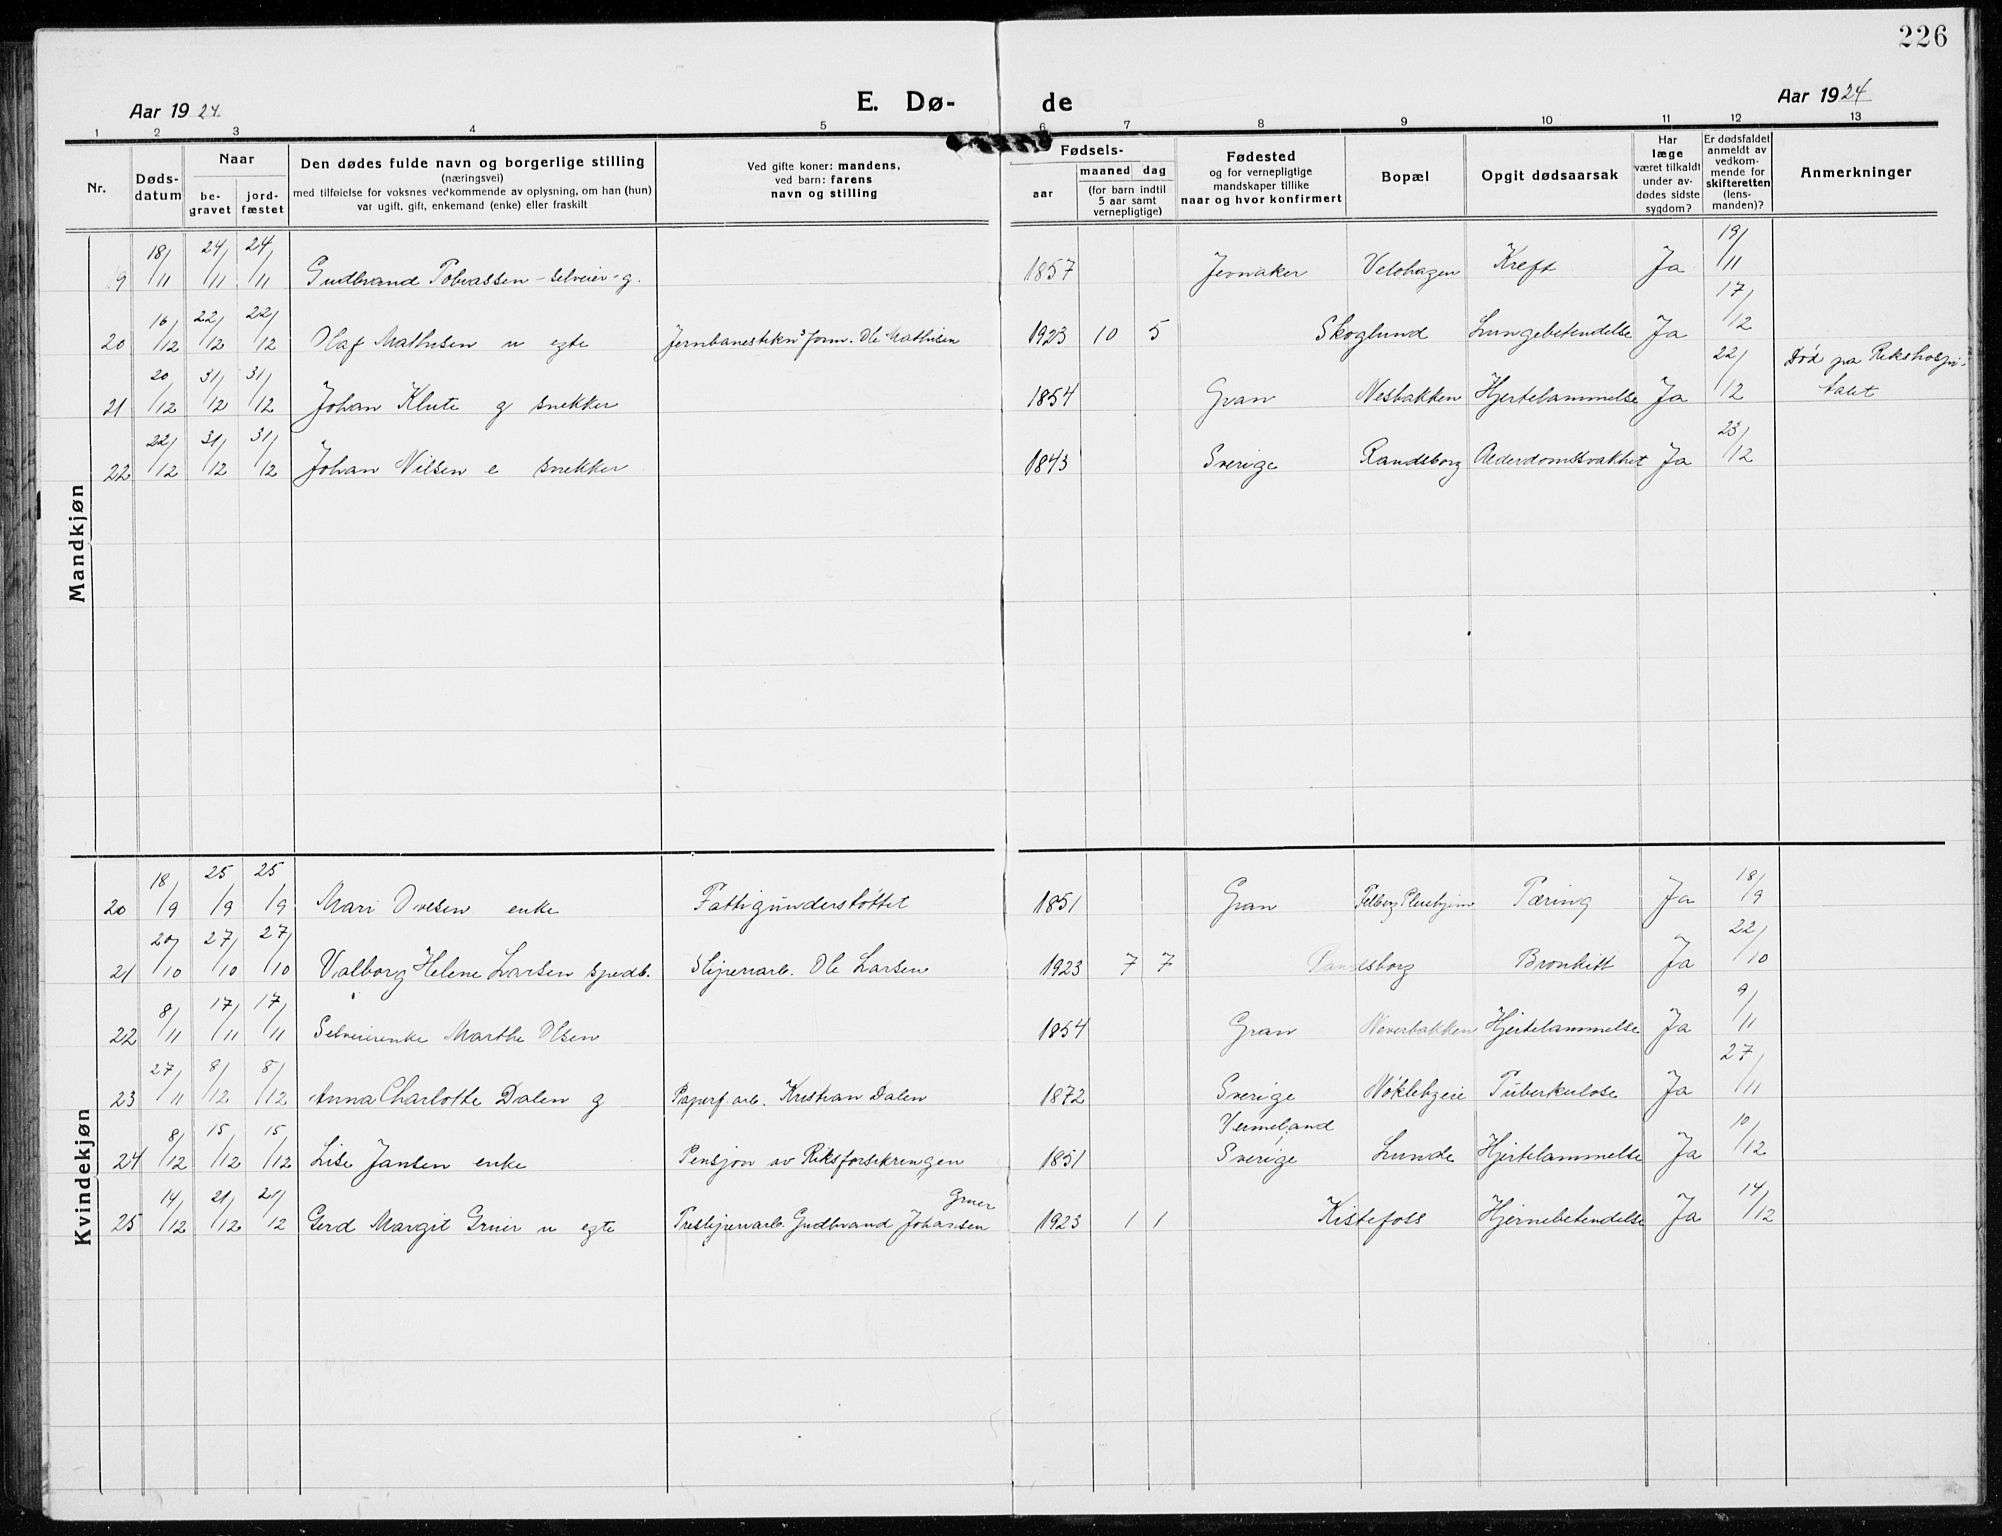 226
Aar 1924. E. Dø- de Aar 1924
1 2 3 4 5 6 7 8 9 10 11 12 13
Nr. Døds-datum Naar be-gravet jord-fæstet Den dødes fulde navn og borgerlige stilling (næringsvei) med tilføielse for voksnes vedkommende av oplysning, om han (hun) var ugift, gift, enkemand (enke) eller fraskilt Ved gifte koner: mandens, ved barn: farens navn og stilling Fødsels- aar maaned dag (for barn indtil 5 aar samt vernepligtige) Fødested og for vernepligtige mandskaper tillike naar og hvor konfirmert Bopæl Opgit dødsaarsak Har læge været tilkaldt under av-dødes sidste sygdom? Er dødsfaldet anmeldt av vedkom-mende for skifteretten (lens-manden)? Anmerkninger
Mandkjøn
19 18/11 24/11 24/11 Gudbrand Tobiassen - selveier - g. 1857 Jevnaker Velohagen Kreft Ja 19/11
20 16/12 22/12 22/12 Olaf Mathisen u egte Jernbanestikn³ form. Ole Mathisen 1923 10 5 Skoglund Lungebetendelse Ja 17/12
21 20/12 31/12 31/12 Johan Klute g snekker 1854 Gran Nesbakken Hjertelammelse Ja 22/12 Død paa Rikshospi-
talet
22 22/12 31/12 31/12 Johan Nilsen e snekker 1843 Sverige Randsborg Alderdomssvakhet Ja 23/12
Kvindekjøn
20 18/9 25/9 25/9 Mari Ovesen enke Fattigunderstøttet 1851 Gran Felberg Pleiehjem Tæring Ja 18/9
21 20/10 27/10 27/10 Valborg Helene Larsen spedb. Sliperiarb. Ole Larsen 1923 7 7 Randsborg Bronkitt Ja 22/10
22 8/11 17/11 17/11 Selveierenke Marthe Olsen 1854 Gran Neverbakken Hjertelammelse Ja 9/11
23 27/11 8/12 8/12 Anna Charlotte Dalen g Papirf arb. Kristian Dalen 1872 Sverige Nøklebyeie Tuberkulose Ja 27/11
24 8/12 15/12 15/12 Lise Jansen enke Pensjon av Riksforsikringen 1851 Vermeland, Sverige Lunde Hjertelammelse Ja 10/12
25 14/12 21/12 21/12 Gerd Margit Gruer u egte Tresliperiarb. Gudbrand Johansen Gruer 1923 1 1 Kistefoss Hjernebetendelse Ja 14/12